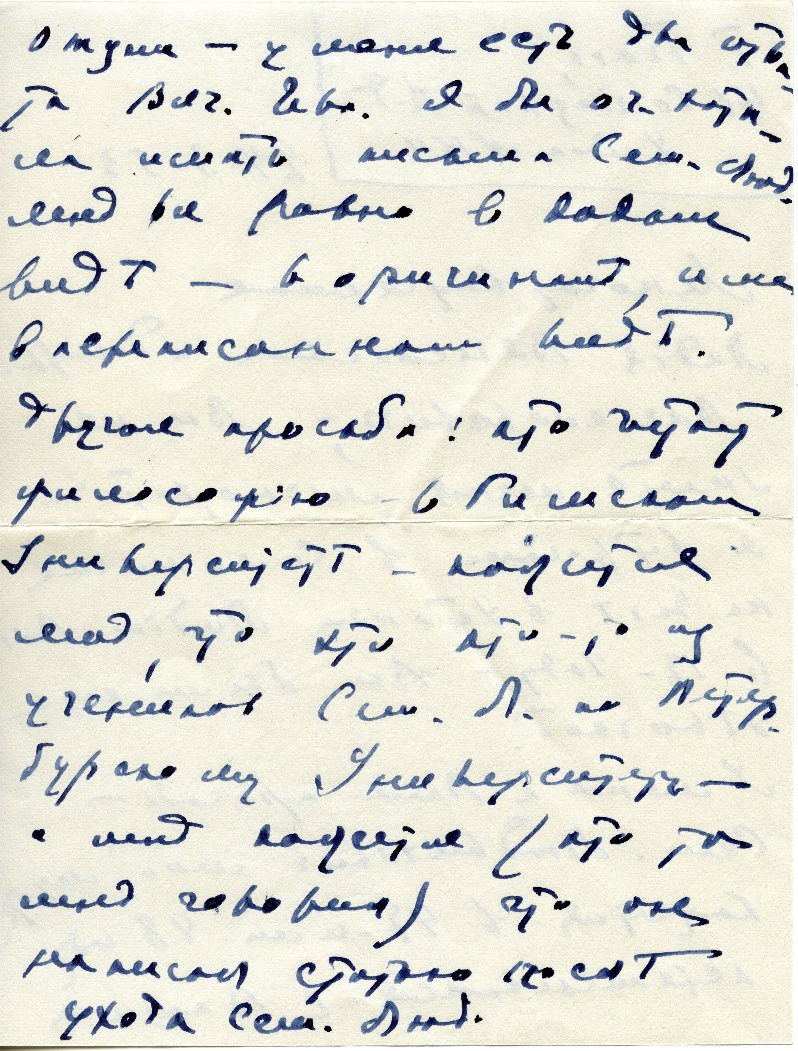 отдуши – у меня есть два отвѣ-
та Вяч. Ив. Я бы оч. хотѣ-
ла имѣть письма Сем. Людв.
мнѣ все равно в каком
видѣ – в оригиналѣ, или
в переписанном видѣ.
Другая просьба: кто читает
философію в Римском
Университетѣ – кажется
мнѣ, что это кто-то из
учеников Сем. Л. по Петер-
бургскому Университету –
и мнѣ кажется (кто то
мнѣ говорил) что он
написал статью послѣ
ухода Сем. Людв.